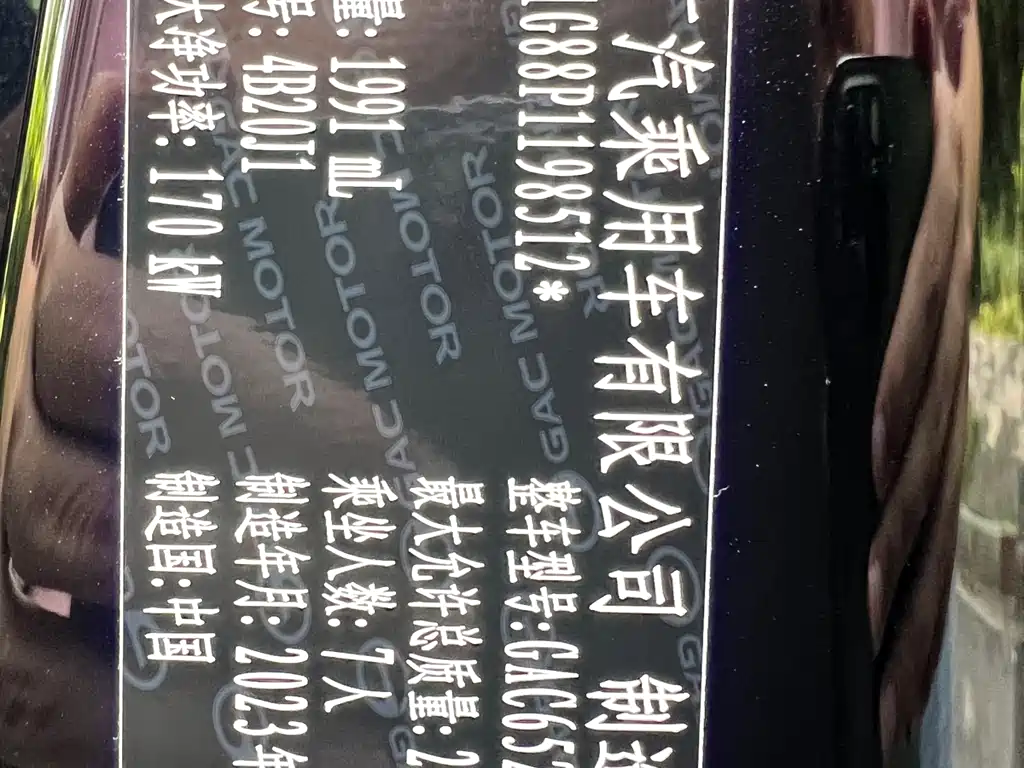 汽乘用车有限公司 制造
G88P1198512* 整车型号:GAC65
最大允许总质量:2
量: 1991 mL 乘坐人数: 7人
号: 4B20J1 制造年月: 2023年
大净功率: 170 kW 制造国: 中国
GAC MOTOR
GAC MOTOR
MOTOR
MOTOR
MOTOR